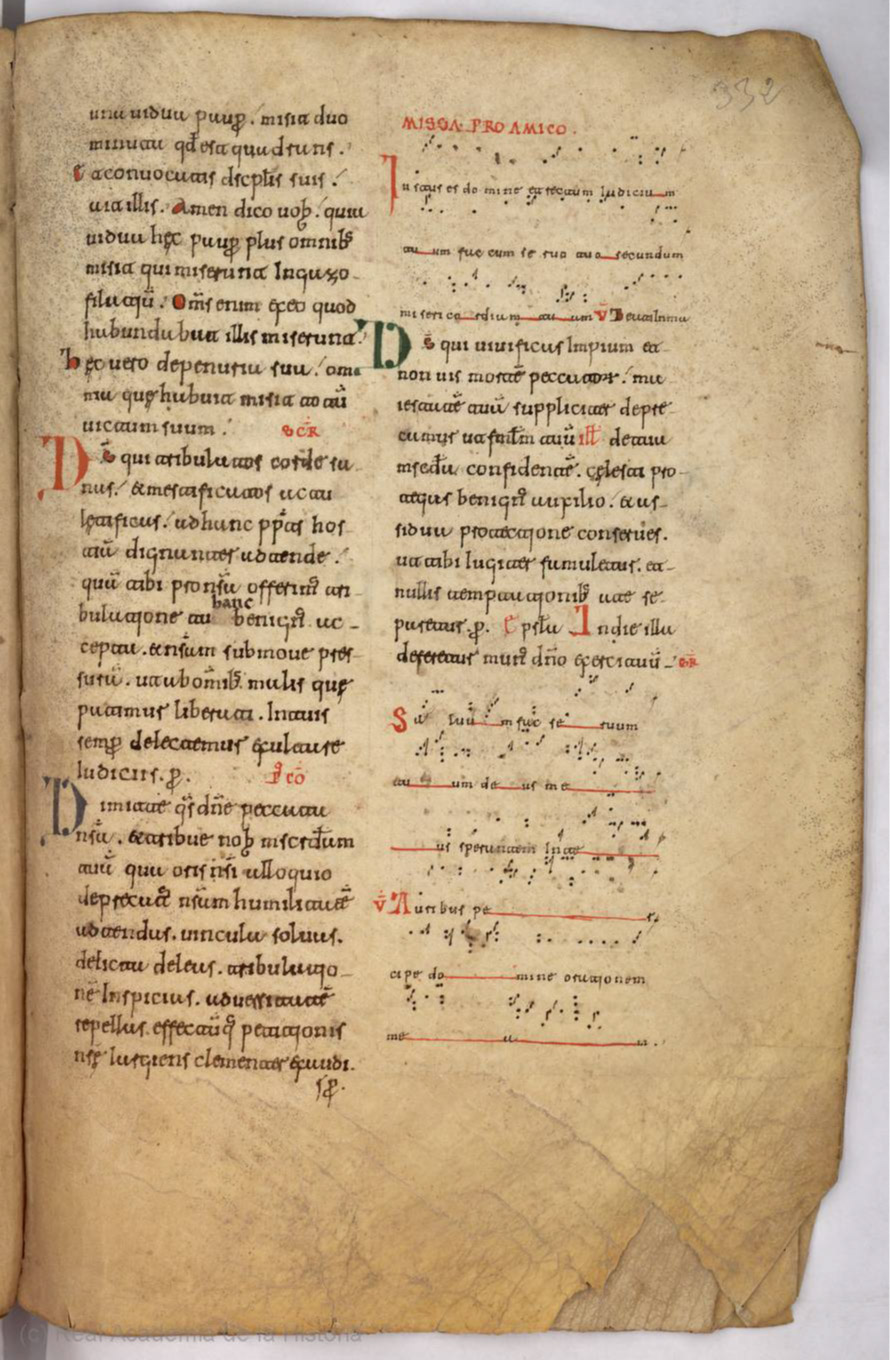 una uidua paup. misit duo
minuta qd est quadrans.
Et conuocatis discplis suis.
ait illis. Amen dico uob. quia
uidua hęc paup plus omnib
misit qui miserunt In gazo
filatiū. Oms enim ex eo quod
habundabat illis miserunt.
hęc uero de penuria sua. om
nia quę habuit misit totū
uictum suum. SCR
Ds qui tribulatos corde sa
nas. et mestificatos actu
lętificas. ad hunc ppas hos
tiā dignanter adtende.
quā tibi pro nsā offerim tri
bulatione hanc benign ac
cepta. et nsam submoue pres
surā. ut ab omib malis quę
patimur liberati. In tuis
semp delectemur exultare
Iudiciis. p. P cō
Dimitte qs dne peccata
nsā. et tribue nob miscrdam
tuā. qua oris nsi alloquio
deprecat nsam humilitatē
adtendas. uincula soluas.
delicta deleas. tribulatio
nē Inspicias. aduersitatē
repellas. effectūq petitionis
nsę largiens clementer exaudi.
s p.
332
MISSA PRO AMICO.
Iustus es domine et rectum Iudicium
tuum fac cum seruo tuo secundum
misericordiam tuam V Beati Inma
Ds qui iuificas Impium et
non uis mortē peccator. ma
iestatē tuā suppliciter depre
camur ut fmlm tuū ill de tua
mscda confidentē. cęlesti pro
tegas benign auxilio. et as
sidua protectione conserues.
ut tibi Iugiter famuletur. et
nullis temptationib a te se
paretur. p. Epsla In die illa
deferetur mun dno exercituū GR
Saluum fac seruum
tuum deus me
us sperantem In te
V Auribus per
cipe domine orationem
meam.
(c) Real Academia de la Historia